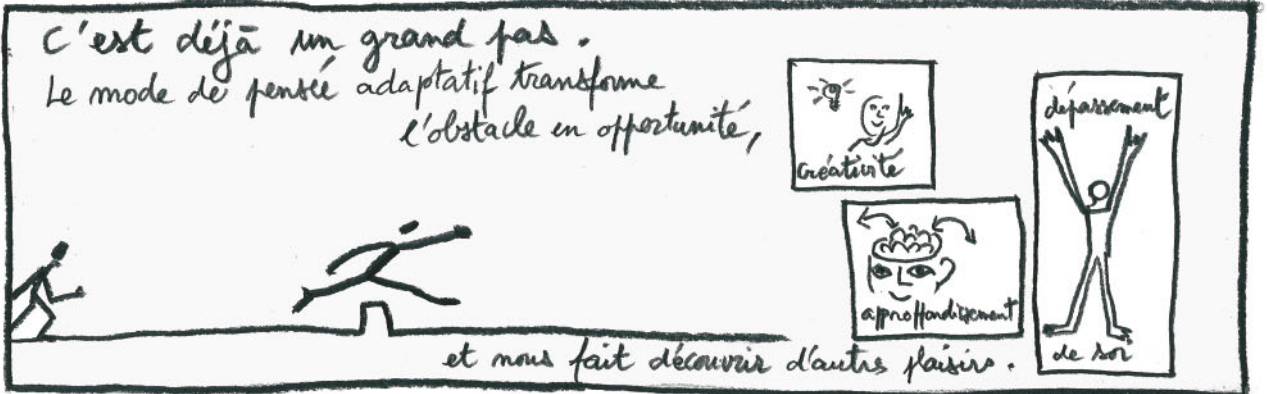 C'est déjà un grand pas.
Le mode de pensée adaptatif transforme
l'obstacle en opportunité,
créativité
dépassement
approffondissement
de soi
et nous fait découvrir d'autres plaisirs.